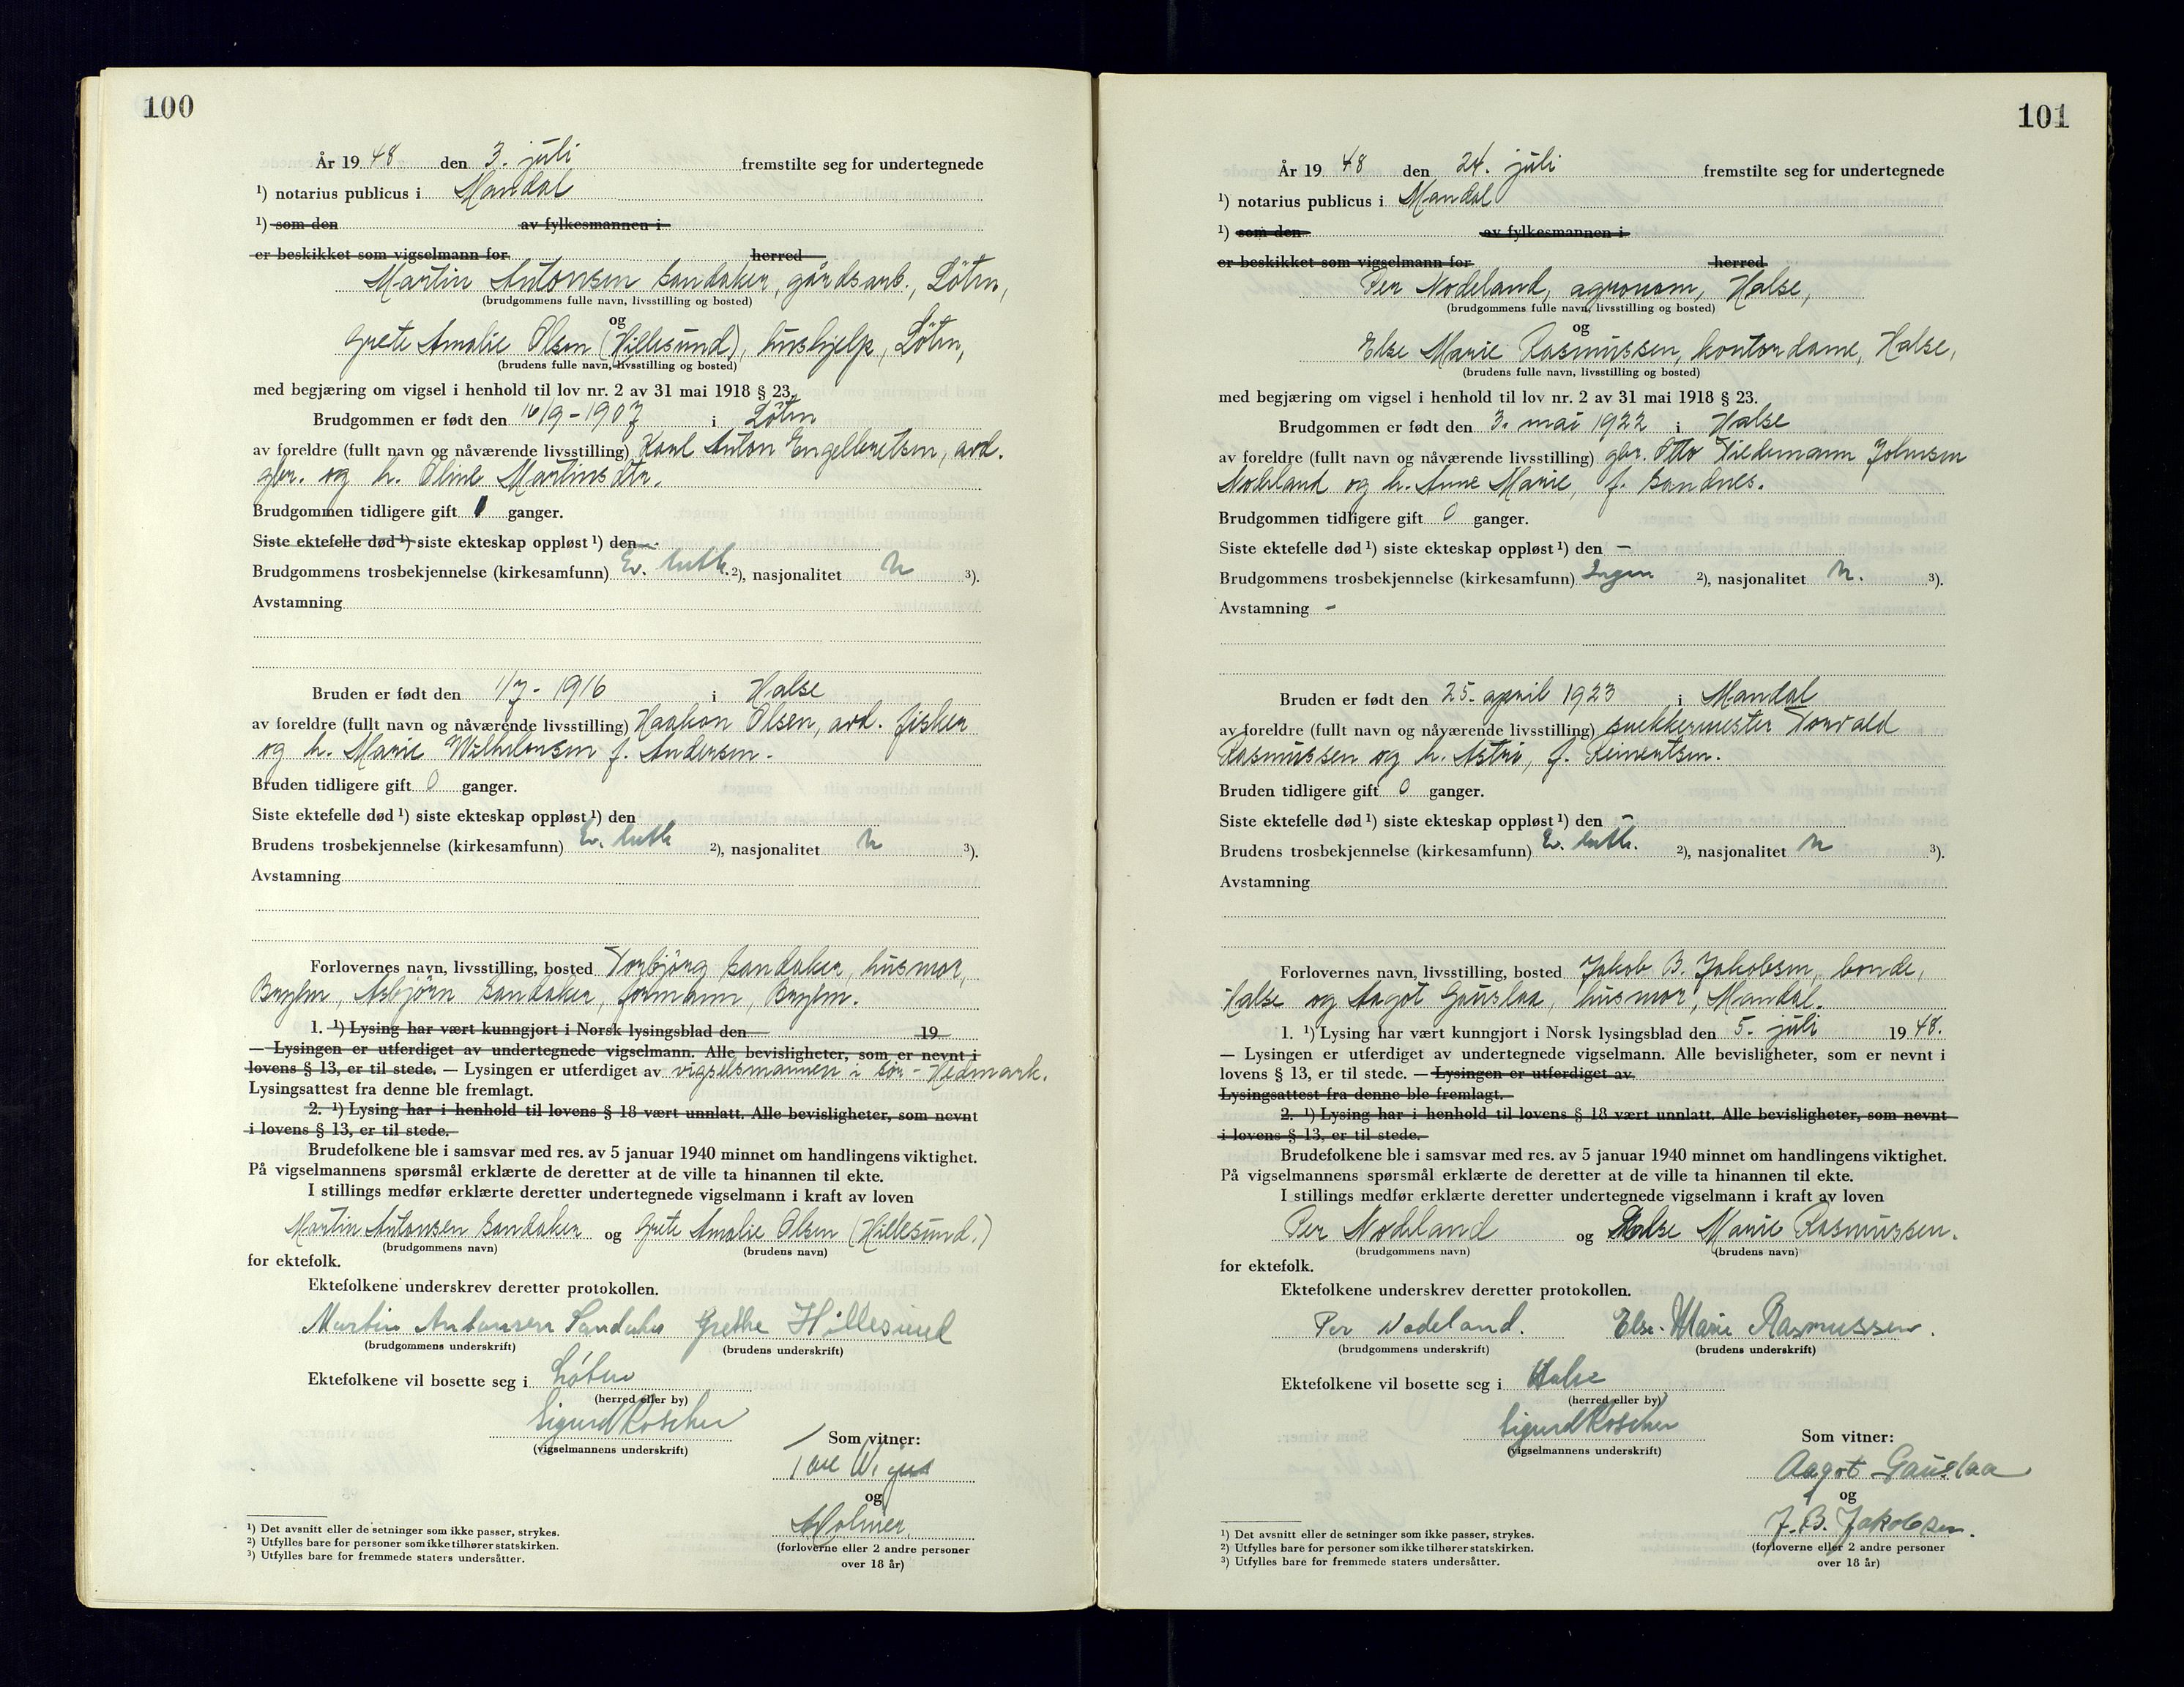 100
År 19 48 den 3. juli fremstilte seg for undertegnede
¹) notarius publicus i Mandal
¹) som den av fylkesmannen i
er beskikket som vigselmann for herred
Martin Antonsen Sandaker, gårdsarb., Löten,
(brudgommens fulle navn, livsstilling og bosted)
og
Grete Amalie Olsen (Hillesund), hushjelp, Löten,
(brudens fulle navn, livsstilling og bosted)
med begjæring om vigsel i henhold til lov nr. 2 av 31 mai 1918 § 23.
Brudgommen er født den 16/9-1907 i Löten
av foreldre (fullt navn og nåværende livsstilling) Karl Anton Engelbretsen, avd.
gbr. og h. Oline Martinsdtr.
Brudgommen tidligere gift ganger.
Siste ektefelle død ¹) siste ekteskap oppløst ¹) den -
Brudgommens trosbekjennelse (kirkesamfunn) Ev. luth. ²), nasjonalitet n ³).
Avstamning
Bruden er født den 1/7-1916 i Halse
av foreldre (fullt navn og nåværende livsstilling) Haakon Olsen, avd. fisker
og h. Marie Wilhelmsen f. Andersen.
Bruden tidligere gift 0 ganger.
Siste ektefelle død ¹) siste ekteskap oppløst ¹) den
Brudens trosbekjennelse (kirkesamfunn) Ev. luth ²), nasjonalitet n ³).
Avstamning
Forlovernes navn, livsstilling, bosted Torbjörg Sandaker, husmor,
Brylm, Asbjörn Sandaker, formann, Brylm.
1. ¹) Lysing har vært kunngjort i Norsk lysingsblad den 19
— Lysingen er utferdiget av undertegnede vigselmann. Alle bevisligheter, som er nevnt i
lovens § 13, er til stede. — Lysingen er utferdiget av vigselsmannen i Sör-Hedmark.
Lysingsattest fra denne ble fremlagt.
2. ¹) Lysing har i henhold til lovens § 18 vært unnlatt. Alle bevisligheter, som nevnt
i lovens § 13, er til stede.
Brudefolkene ble i samsvar med res. av 5 januar 1940 minnet om handlingens viktighet.
På vigselmannens spørsmål erklærte de deretter at de ville ta hinannen til ekte.
I stillings medfør erklærte deretter undertegnede vigselmann i kraft av loven
Martin Antonsen Sandaker og Grete Amalie Olsen (Hillesund.)
(brudgommens navn) (brudens navn)
for ektefolk.
Ektefolkene underskrev deretter protokollen.
Martin Antonsen Sandaker Grethe Hillesund
(brudgommens underskrift) (brudens underskrift)
Ektefolkene vil bosette seg i Löten
(herred eller by)
Sigurd Roscher
(vigselmannens underskrift)
Som vitner:
og
AHolmer.
(forloverne eller 2 andre personer
over 18 år)
¹) Det avsnitt eller de setninger som ikke passer, strykes.
²) Utfylles bare for personer som ikke tilhører statskirken.
³) Utfylles bare for fremmede staters undersåtter.
101
År 19 48 den 24. juli fremstilte seg for undertegnede
¹) notarius publicus i Mandal
¹) som den av fylkesmannen i
er beskikket som vigselmann for herred
Per Nodeland, agronom, Halse,
(brudgommens fulle navn, livsstilling og bosted)
og
Else Marie Rasmussen, kontordame, Halse,
(brudens fulle navn, livsstilling og bosted)
med begjæring om vigsel i henhold til lov nr. 2 av 31 mai 1918 § 23.
Brudgommen er født den 3. mai 1922 i Halse
av foreldre (fullt navn og nåværende livsstilling) gbr. Otto Tidemann Johnsen
Nodeland og h. Anne Marie, f. Sandnes.
Brudgommen tidligere gift 0 ganger.
Siste ektefelle død ¹) siste ekteskap oppløst ¹) den -
Brudgommens trosbekjennelse (kirkesamfunn) Ingen ²), nasjonalitet n. ³).
Avstamning -
Bruden er født den 25. april 1923 i Mandal
av foreldre (fullt navn og nåværende livsstilling) snekkermester Torvald
Rasmussen og h. Astri, f. Reinertsen.
Bruden tidligere gift 0 ganger.
Siste ektefelle død ¹) siste ekteskap oppløst ¹) den -
Brudens trosbekjennelse (kirkesamfunn) Ev. luth. ²), nasjonalitet n ³).
Avstamning
Forlovernes navn, livsstilling, bosted Jakob B. Jakobsen, bonde,
Halse og Aagot Gauslaa, husmor, Mandal.
1. ¹) Lysing har vært kunngjort i Norsk lysingsblad den 5. juli 19 48.
— Lysingen er utferdiget av undertegnede vigselmann. Alle bevisligheter, som er nevnt i
lovens § 13, er til stede. — Lysingen er utferdiget av
Lysingsattest fra denne ble fremlagt.
2. ¹) Lysing har i henhold til lovens § 18 vært unnlatt. Alle bevisligheter, som nevnt
i lovens § 13, er til stede.
Brudefolkene ble i samsvar med res. av 5 januar 1940 minnet om handlingens viktighet.
På vigselmannens spørsmål erklærte de deretter at de ville ta hinannen til ekte.
I stillings medfør erklærte deretter undertegnede vigselmann i kraft av loven
Per Nodeland og Else Marie Rasmussen.
(brudgommens navn) (brudens navn)
for ektefolk.
Ektefolkene underskrev deretter protokollen.
Per Nodeland. Else-Marie Rasmussen.
(brudgommens underskrift) (brudens underskrift)
Ektefolkene vil bosette seg i Halse
(herred eller by)
Sigurd Roscher
(vigselmannens underskrift)
Som vitner:
Aagot Gauslaa
og
J. B. Jakobsen.
(forloverne eller 2 andre personer
over 18 år)
¹) Det avsnitt eller de setninger som ikke passer, strykes.
²) Utfylles bare for personer som ikke tilhører statskirken.
³) Utfylles bare for fremmede staters undersåtter.